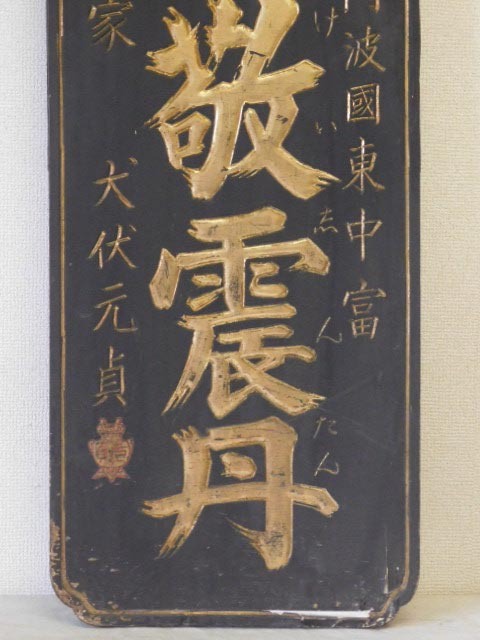 波國東中富
けいしんたん
敬震丹
家 犬伏元貞